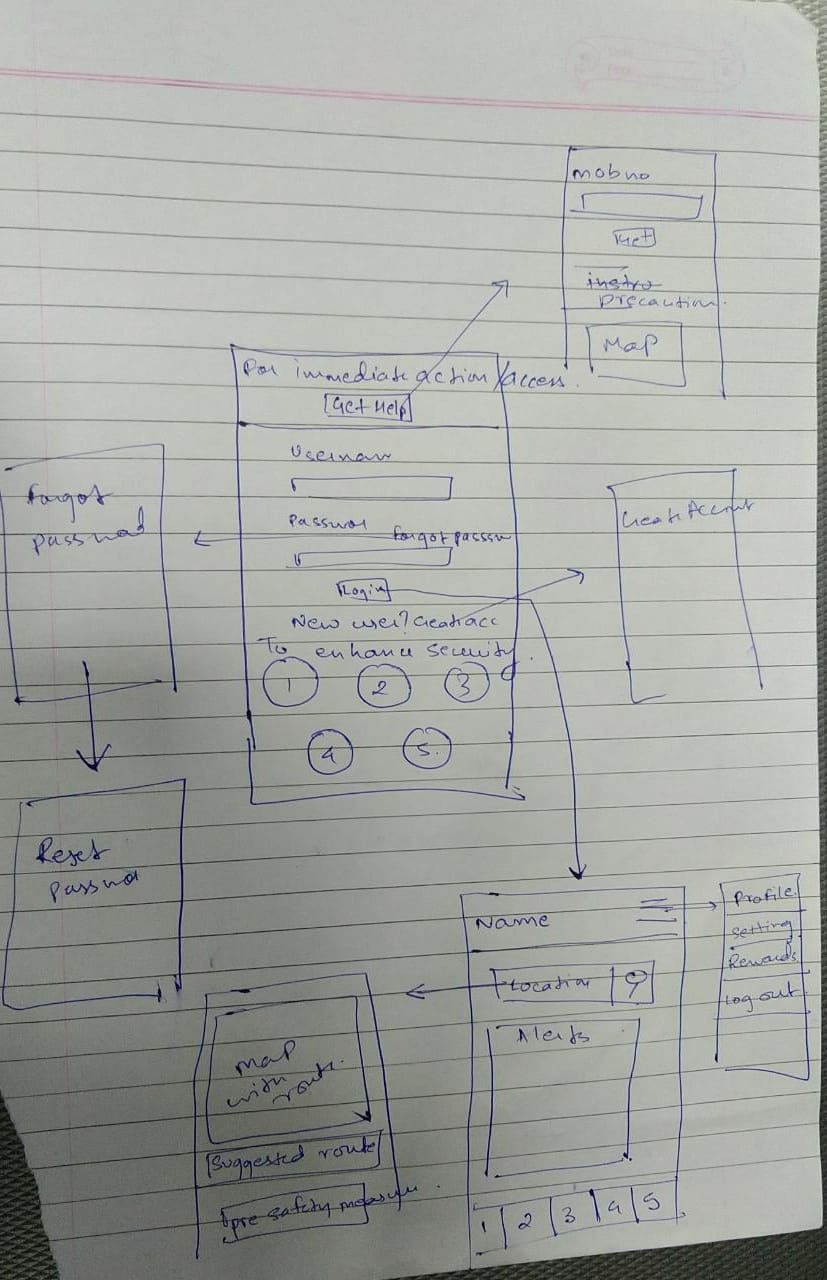 mob no
Get
instru
precaution.
Map
For immediate action/access.
Get Help
Username
Password
forgot passw
Login
New user? Creat acc
To enhance security.
1 2 3
4 5.
Forgot
password
Create Account
Reset
passwod
Name
Location
Alerts
1 2 3 4 5
Profile
setting
Rewards
Log out
map
with
route.
Suggested route
pre safety measure